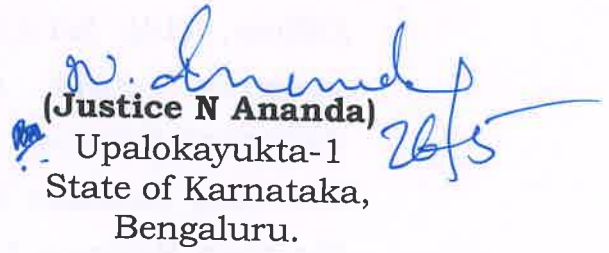 N. Ananda
(Justice N Ananda)
26/5
Upalokayukta-1
State of Karnataka,
Bengaluru.